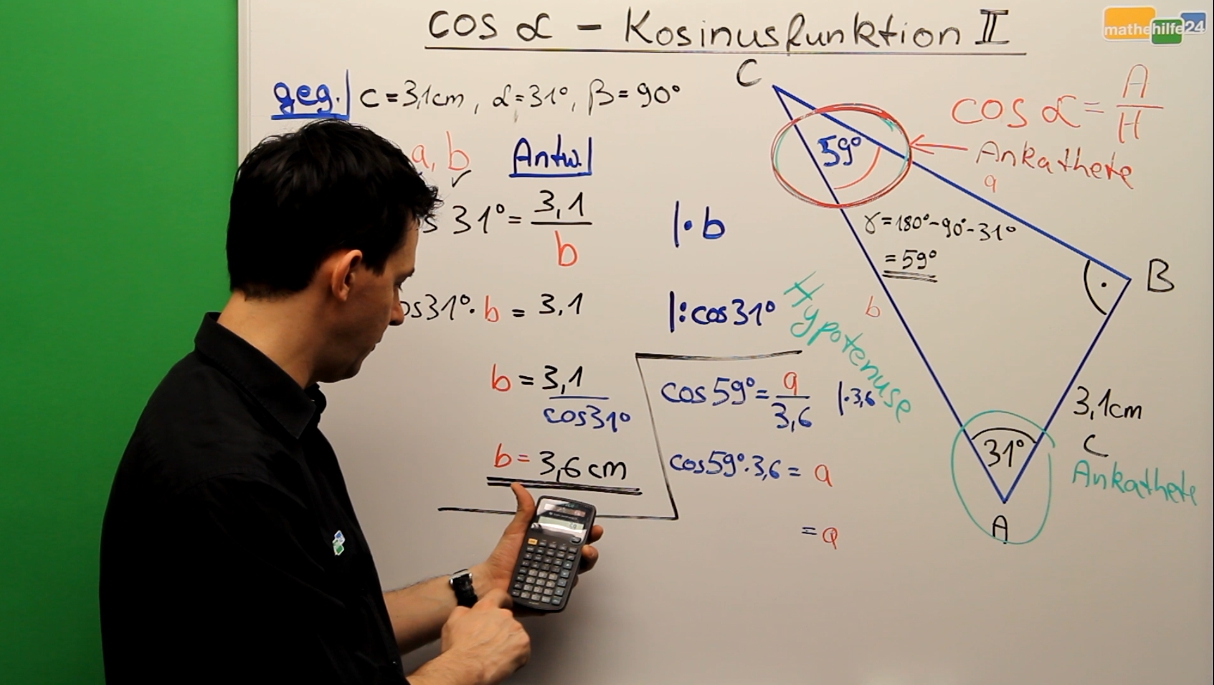 cos α – Kosinusfunktion II
mathehilfe24
geg. c = 3,1cm, α = 31°, β = 90°
a, b Antw.
31° = 3,1 / b |· b
cos31° · b = 3,1 |: cos31°
b = 3,1 / cos31°
b = 3,6 cm
cos59° = a / 3,6 |· 3,6
cos59° · 3,6 = a
= a
C
59°
cos α = A / H
Ankathete
a
γ = 180° - 90° - 31°
= 59°
B
b
Hypotenuse
3,1cm
c
Ankathete
31°
A